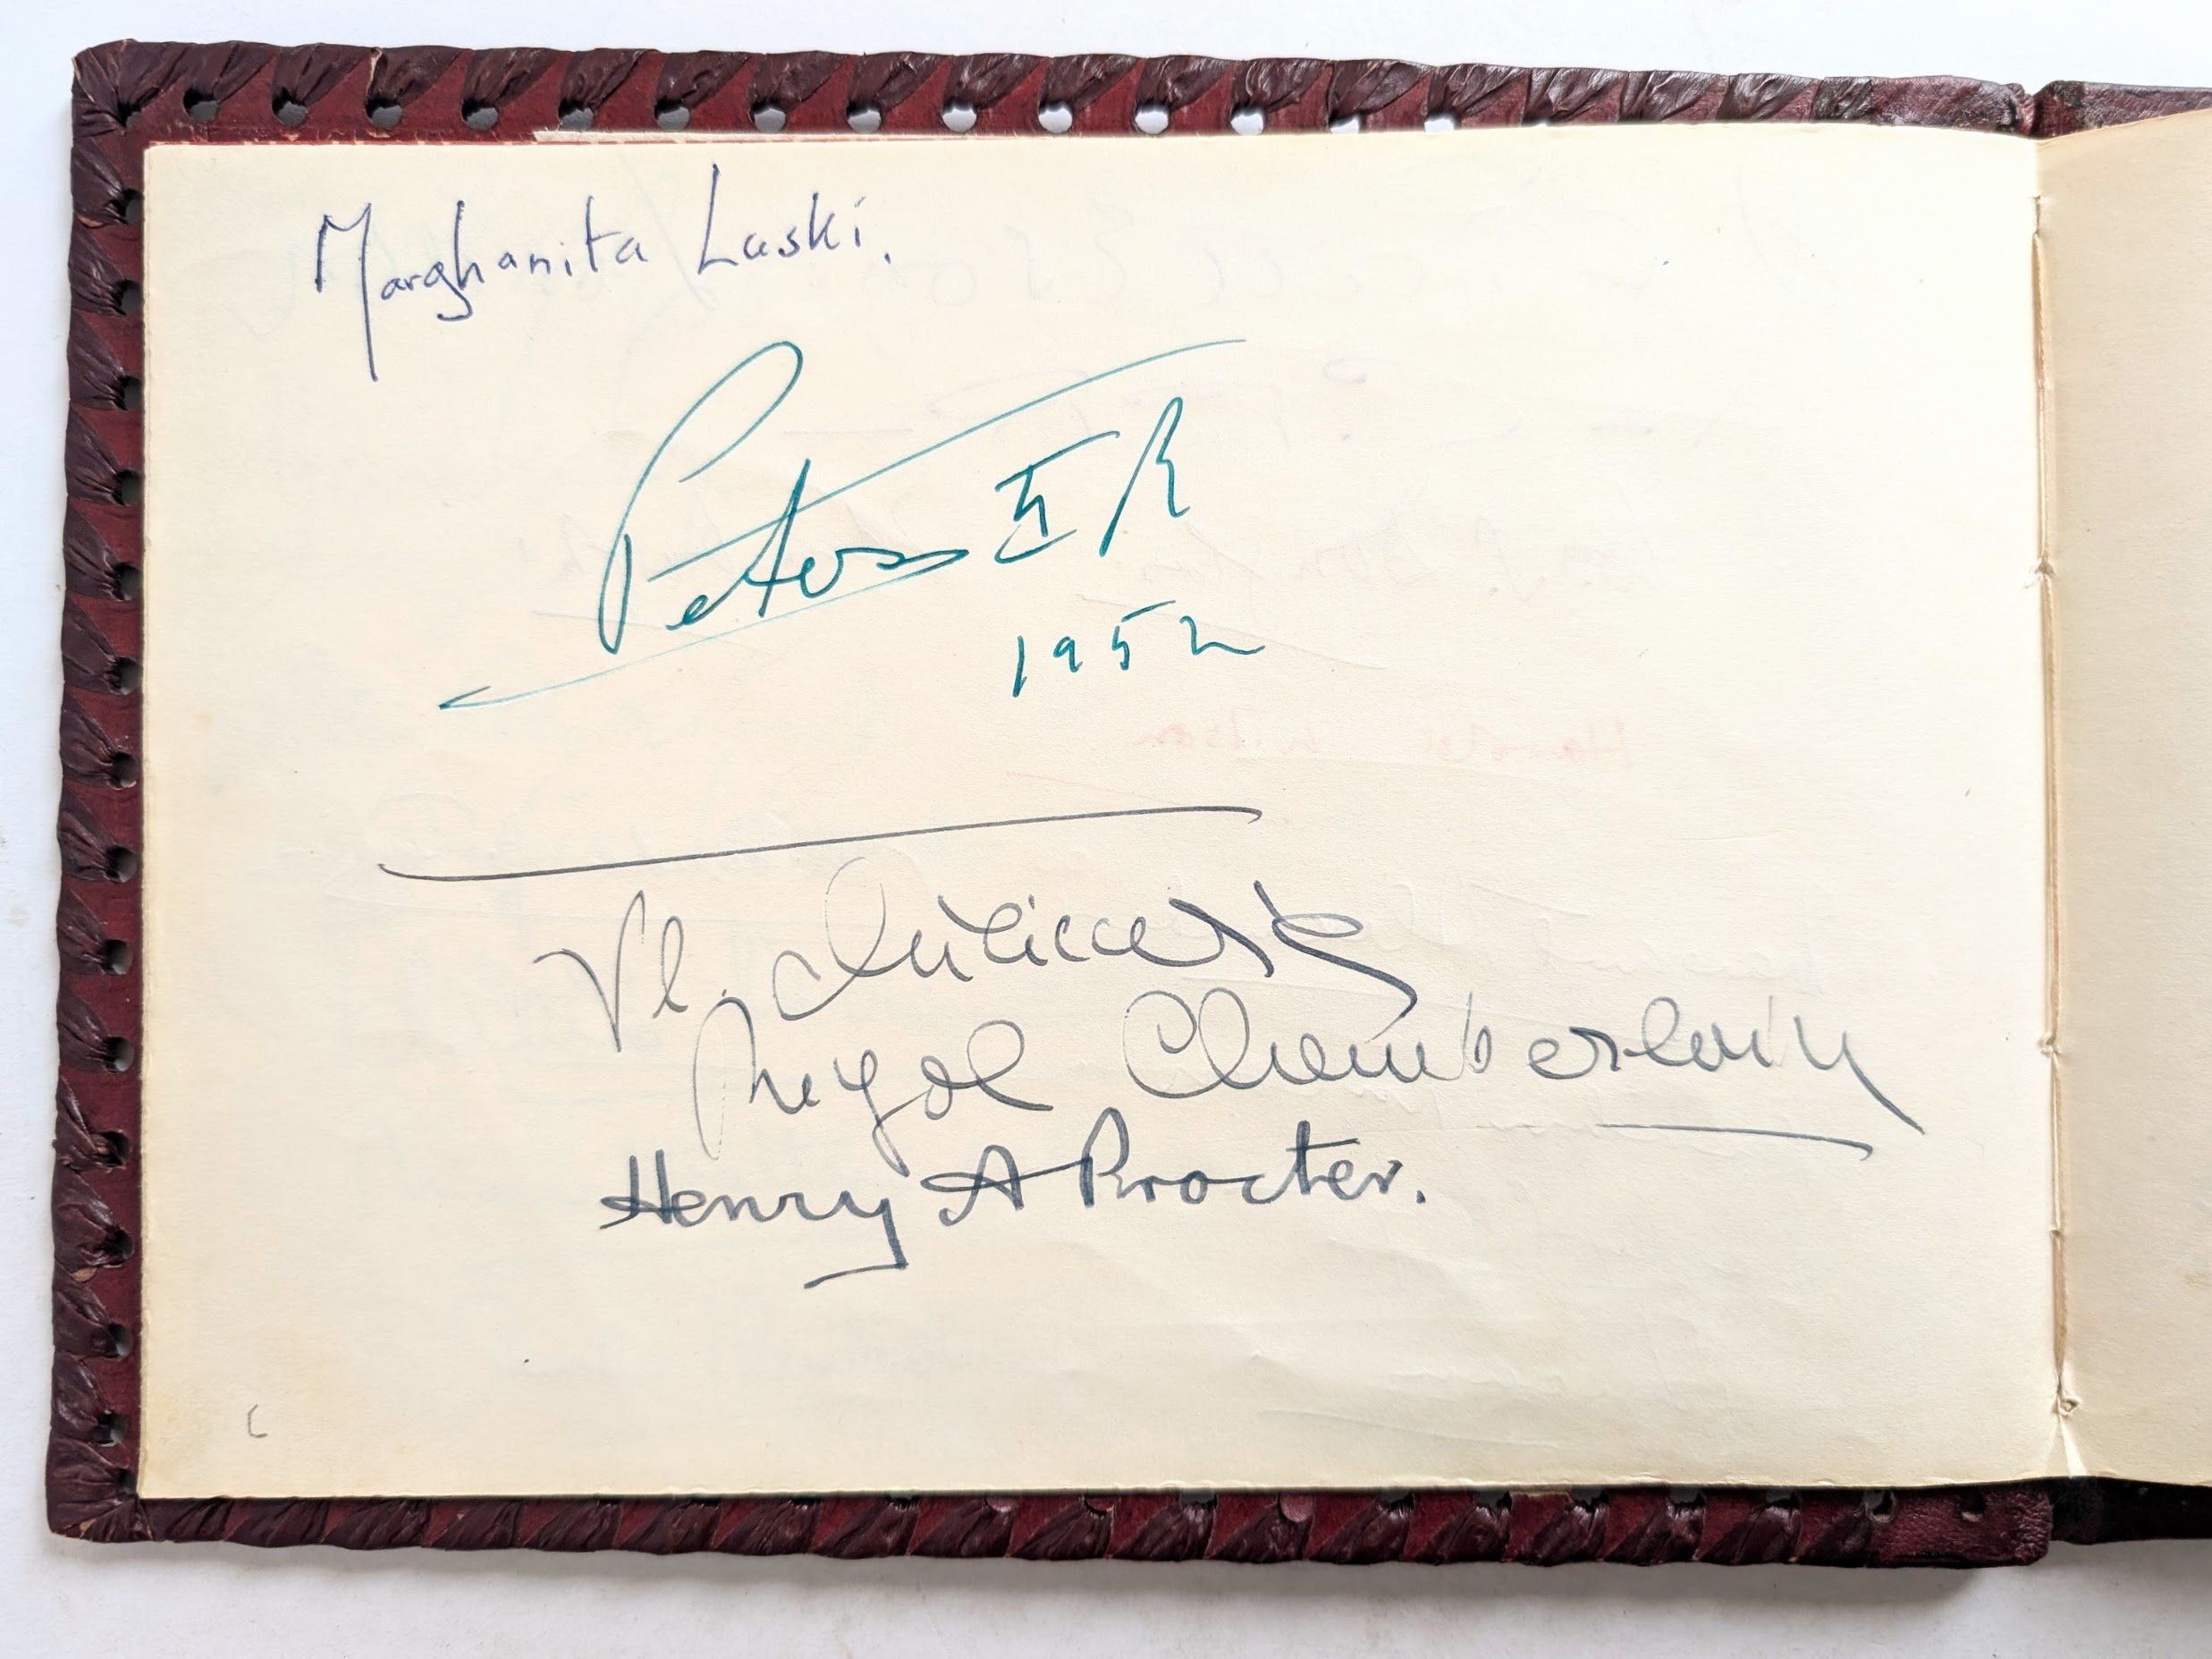 Marghanita Laski.
Petrus II R
1952
Vl.
Neyol Chemberlain
Henry A Procter.